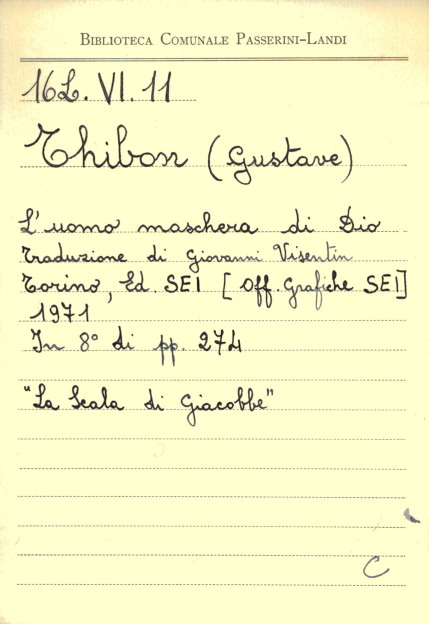 BIBLIOTECA COMUNALE PASSERINI-LANDI
16L. VI. 11
Thibon (Gustave)
L'uomo maschera di Dio
Traduzione di Giovanni Visentin
Torino, Ed. SEI [Off. Grafiche SEI]
1971
In 8° di pp. 274
"La Scala di Giacobbe"
C